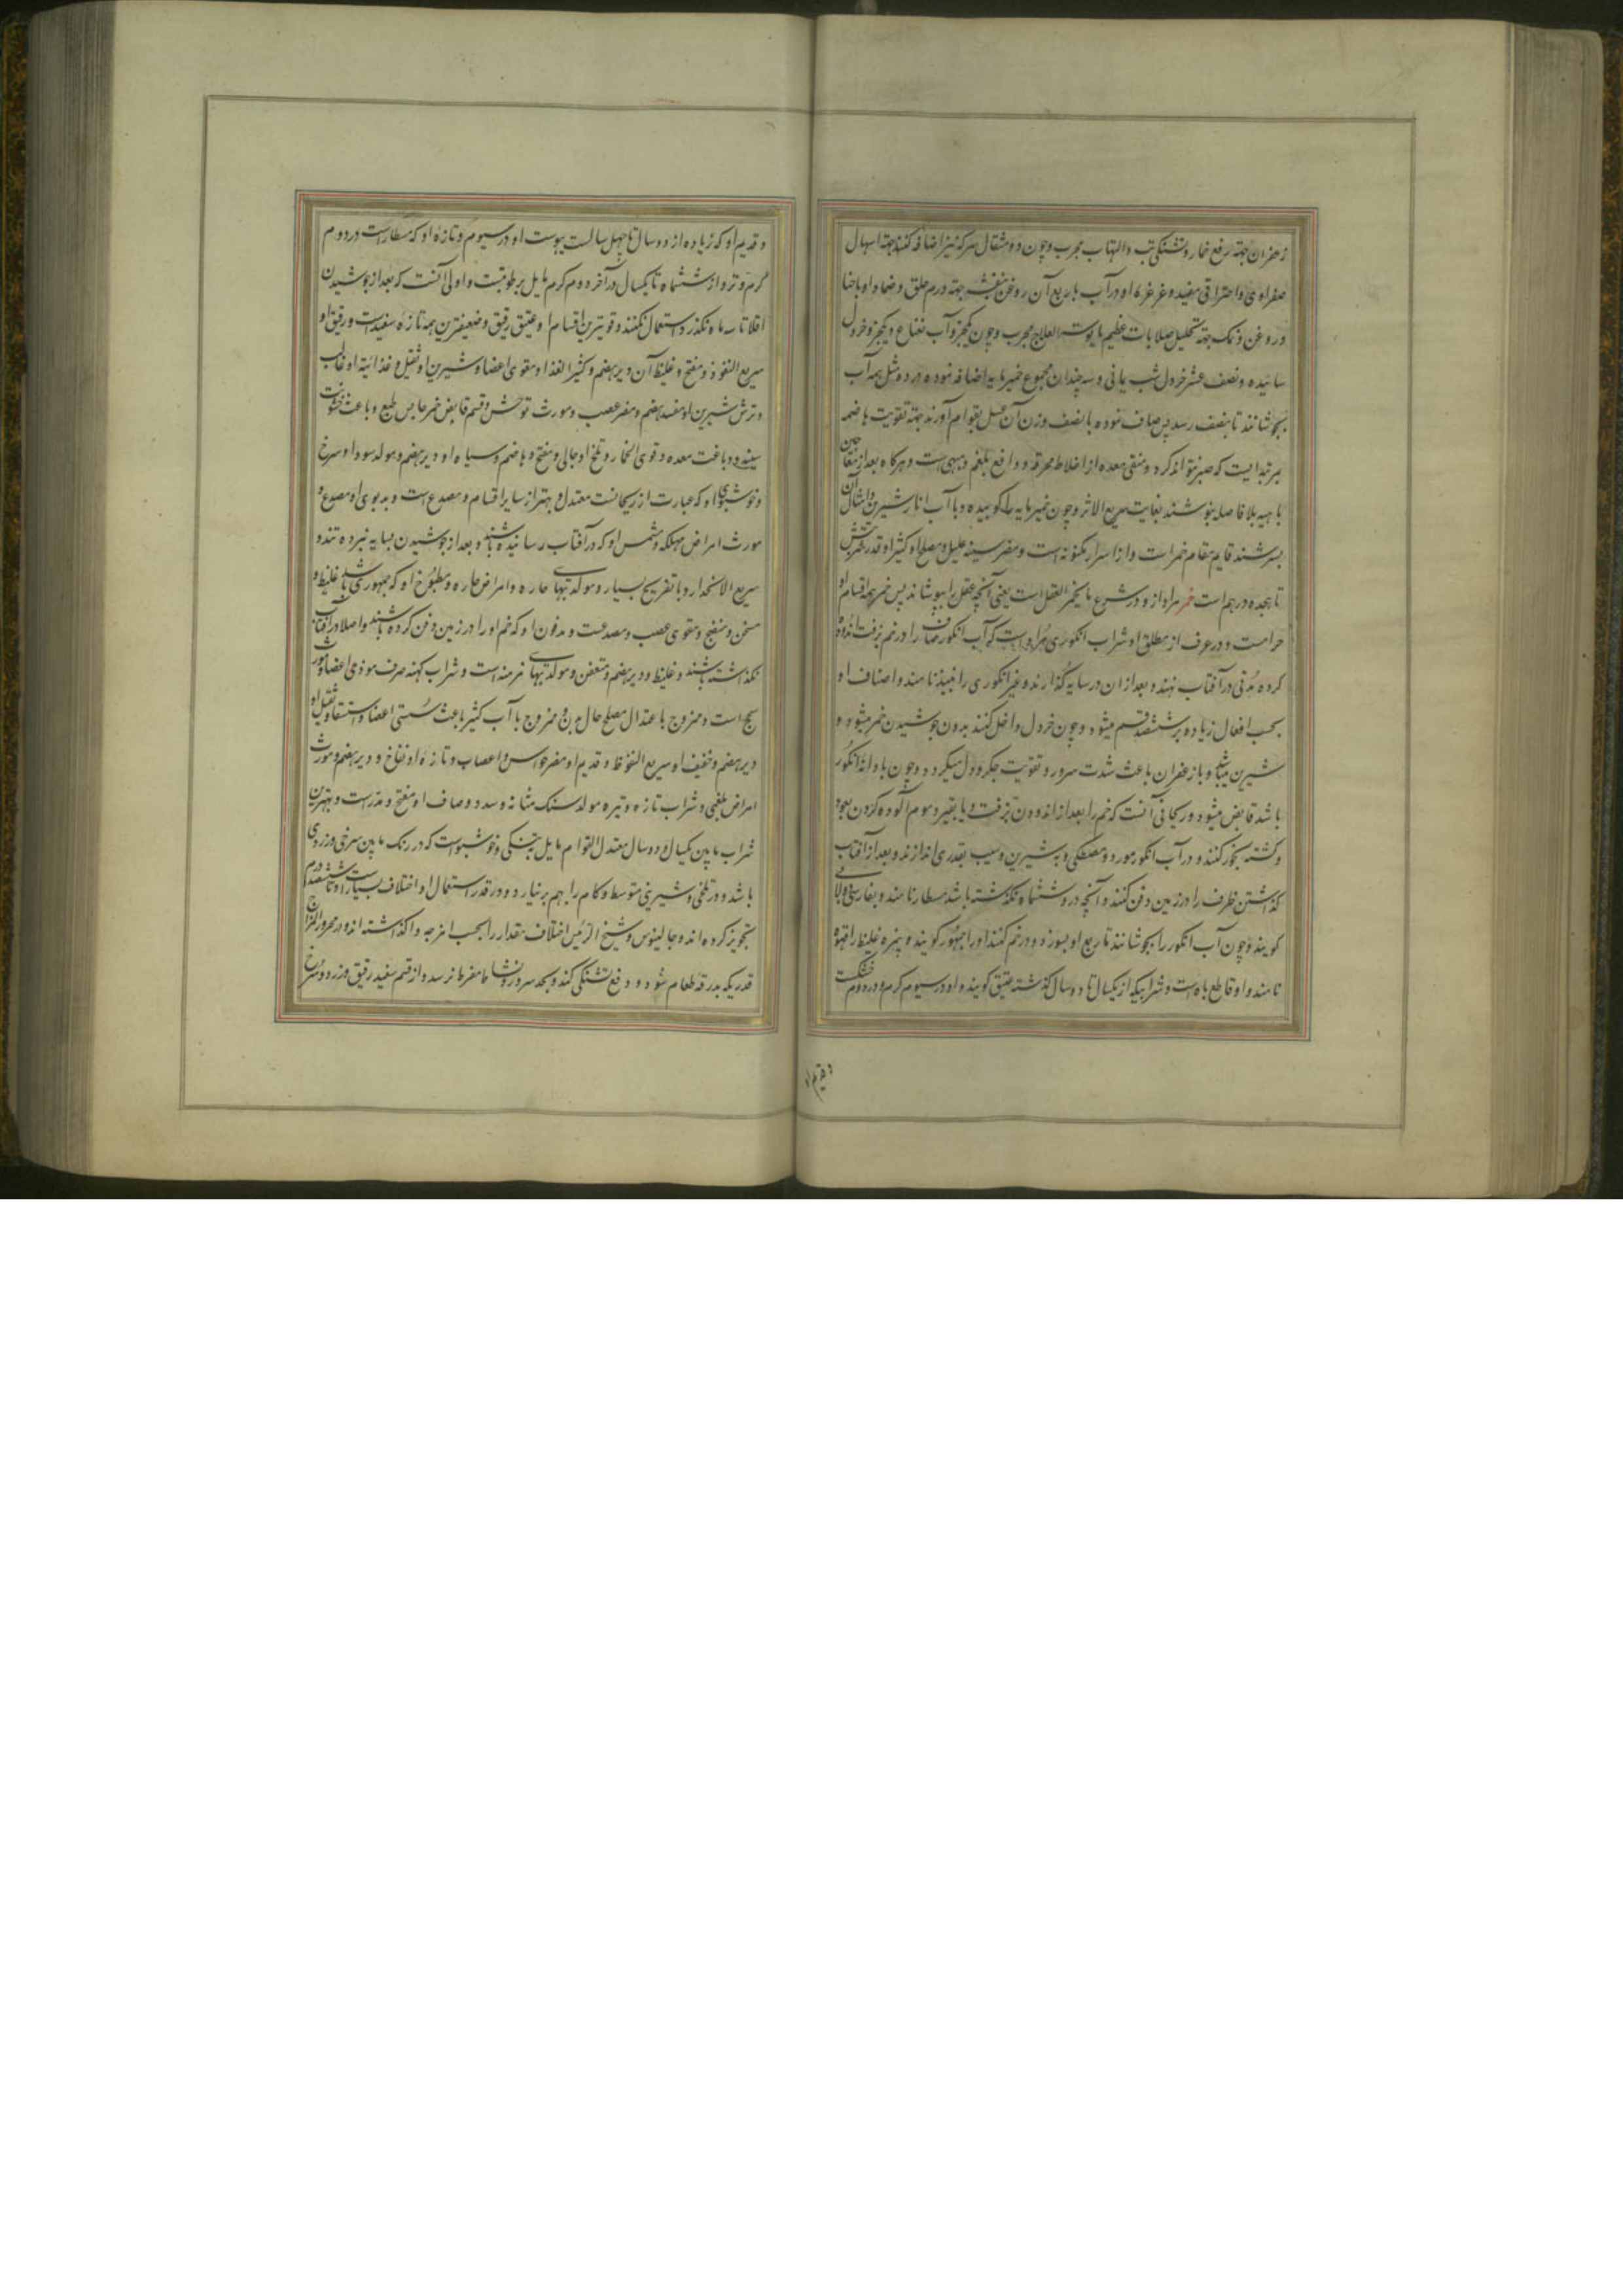 زعفران جهته رفع خمار و تشنگی تب و التهاب مجرب و چون دو مثقال سرکه نیز اضافه کنند جهته اسهال
صفراوی و احتراقی مفید و غرغره او در آب با ربع آن روغن بنفشه جهته ورم حلق و ضماد او با حنا
و روغن و نمک جهته تحلیل صلابات عظیم مایوست العلاج مجرب و چون یکجزو آب نعناع و یکجزو خردل
سائیده و نصف عشر خردل شب یمانی و سه چندان مجموع خمیرمایه اضافه نموده در ده مثل همه آب
بجوشانند تا بنصف رسد پس صاف نموده با نصف وزن آن عسل بقوام آورند جهته تقویت هاضمه
بمرتبه ایست که صبر نتواند کرد و منقی معده از اخلاط محرقه و دافع بلغم و مبهی است و هرکاه بعد از معاجین
باهیه بلا فاصله بنوشند بغایت سریع الاثر و چون خمیرمایه را کوبیده و با آب انار شیرین و امثال آن
بسرشند قایم مقام خمر است و از اسرار مکنونه است و مضر سینه علیل و مصلح او کثیرا و قدر شربتش
تا هجده درهم است خمر مراد از و در شرع ما یخمر العقل است یعنی آنچه عقل را بپوشاند پس خمر همه اقسام او
حرامست و در عرف از مطلق او شراب انکوری مراد است که آب انکور صاف را در خم بزفت اندوده
کرده مدتی در آفتاب نهند و بعد از ان در سایه کذارند و غیر انکوری را نبیذ نامند و اصناف او
بحسب افعال زیاده بر ششصد قسم میشود و چون خردل داخل کنند بدون جوشیدن خمر میشود و
شیرین میباشد و با زعفران باعث شدت سرور و تقویت جکر و دل میکردد و چون با دانه انکور
باشد قابض میشود و ریحانی آنست که خم را بعد از اندودن بزفت و یا بقیر و موم آلوده کردن بعود
و کشته بخور کنند و در آب انکور مورد و مصطکی و به شیرین و سیب بقدری اندازند و بعد از آفتاب
کذاشتن ظرف را در زمین دفن کنند و آنچه درو ششماه نکذشته باشد مسطار نامند و بفارسی دولابی
کویند و چون آب انکور را بجوشانند تا ربع او بسوزد و در خم کنند او را جمهور کویند و تیره غلیظ را قهوه
نامند و او قاطع باه است و شرابیکه از یکسال تا دو سال کذشته عتیق کویند و او در سیوم کرم و در دوم خشکست
و قدیم او
و قدیم او که زیاده از دو سال تا چهل سالست یبوست او در سیوم و تازه او که مسطار است در دوم
کرم و تر و از ششماه تا یکسال در آخر دوم کرم مایل برطوبت و اولی آنست که بعد از جوشیدن
اقلا تا سه ماه نکذرد استعمال نکنند و قویترین اقسام او عتیق رقیق و ضعیفترین همه تازه سفید است و رقیق او
سریع النفوذ و مفتح و غلیظ آن دیرهضم و کثیر الغذا و مقوی اعضا و شیرین او ثقیل و غذائیة او غالب
و ترش شیرین او مفسد هضم و مضر عصب و مورث توحش و قسم قابض خمر حابس طبع و باعث خشونت
سینه و دباغت معده و قوی الخمار و تلخ او جالی و مفتح و هاضم و سیاه او دیرهضم و مولد سودا و سرخ
و خوشبوی او که عبارت از ریحانیست معتدل و بهتر از سایر اقسام و مصدع است و بدبوی او مصدع و
مورث امراض مهلکه و مشمس او که در آفتاب رسانیده باشند و بعد از جوشیدن بسایه نبرده تند و
سریع الانحدار و با تفریح بسیار و مولد تبهای حاره و امراض حاره و مطبوخ او که جمهوری باشد غلیظ و
مسخن و منضج و مقوی عصب و مصدعست و مدفون او که خم او را در زمین دفن کرده باشند و اصلا در آفتاب
نکذاشته باشند غلیظ و دیرهضم و متعفن و مولد تبهای مزمنه است و شراب کهنه صرف موذی اعضا و مورث
سحج است و ممزوج باعتدال مصلح حال بدن و ممزوج با آب کثیر باعث سستی اعضا و استسقا و ثقیل او
دیرهضم و خفیف او سریع النفوظ و قدیم او مضر حواس و اعصاب و تازه او نفاخ و دیرهضم و مورث
امراض بلغمی و شراب تازه و تیره مولد سنک مثانه و سدد و صاف او مفتح و مدرست و بهترین
شراب مابین یکسال و دو سال معتدل القوام مایل بتنکی و خوشبوست که در رنک مابین سرخی و زردی
باشد و در تلخی و شیرینی متوسط و کام را بهم برنیارد و در قدر استعمال او اختلاف بسیار است تا ششصد درم
تجویز کرده اند و جالینوس و شیخ الرئیس اختلاف مقدار را بحسب امزجه واکذاشته اند و در محرور المزاج
قدریکه بدرقه طعام شود و رفع تشنکی کند و بحد سرور و نشاط مفرط نرسد و از قسم سفید رقیق و زرد و سرخ